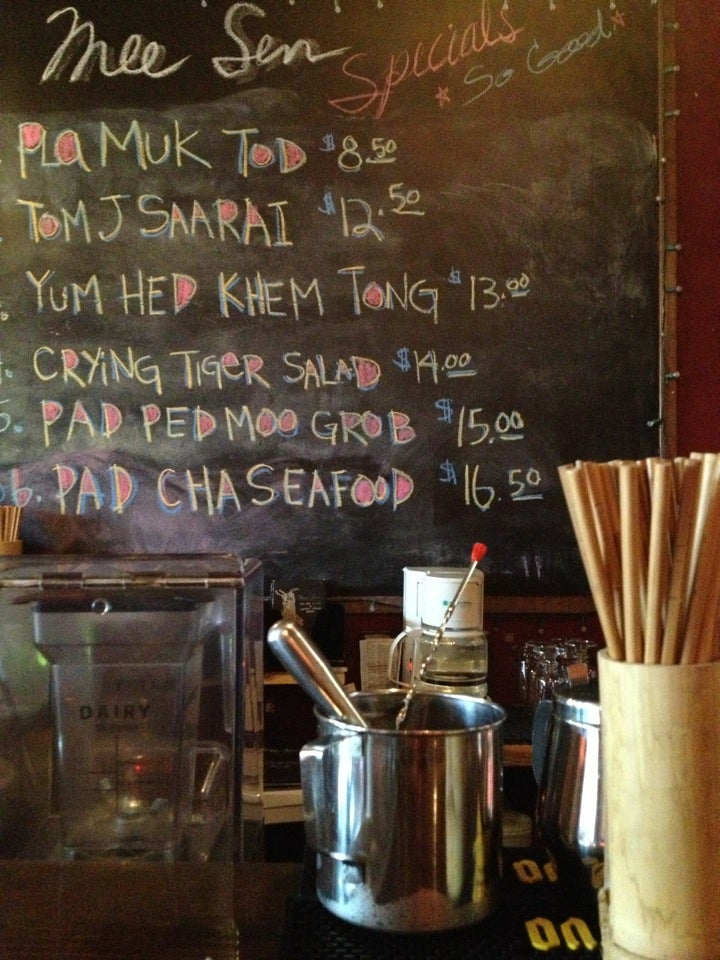 Mee Sen Specials
So Good
PLA MUK TOD $8.50
TOM J SAARAI $12.50
YUM HED KHEM TONG $13.00
CRYING TIGER SALAD $14.00
5. PAD PED MOO GROB $15.00
6. PAD CHA SEAFOOD $16.50
DAIRY